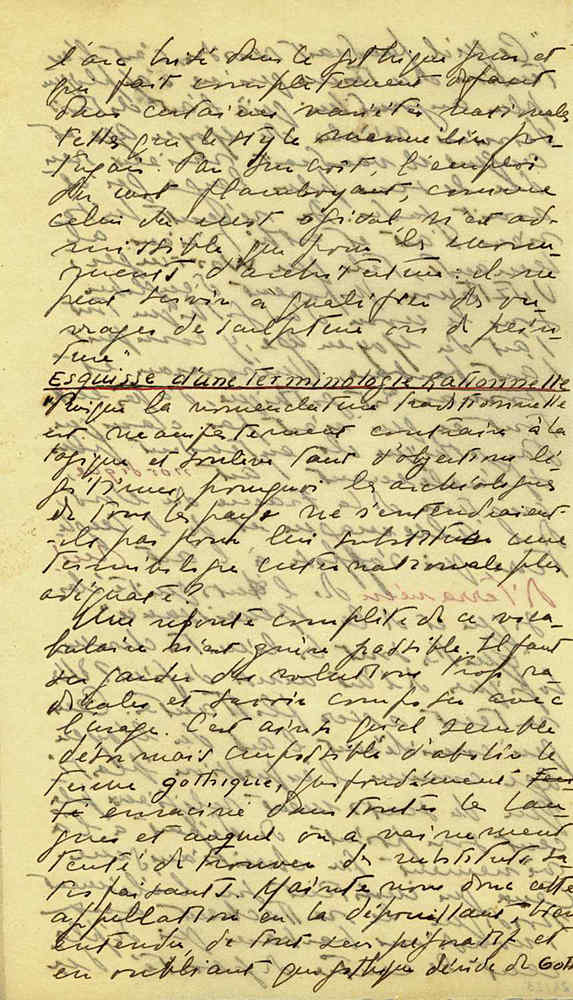 l'arc brisé dans le gothique pur" et
qui fait complètement défaut
dans certaines variétés nationales
telles que le style manuélin por-
tugais. Par surcroît, l'emploi
du mot flamboyant, comme
celui du mot ogival n'est ad-
missible que pour les monu-
ments d'architecture : il ne
peut servir à qualifier des ou-
vrages de sculpture ou de pein-
ture"
Esquisse d'une terminologie rationnelle
"Puisque la nomenclature traditionnelle
est manifestement contraire à la
logique et soulève tant d'objections lé-
gitimes, pourquoi les archéologues
de tous les pays ne s'entendraient-
-ils pas pour lui substituer une
terminologie internationale plus
adéquate ?
Une refonte complète de ce voca-
bulaire n'est guère possible. Il faut
se garder des solutions trop ra-
dicales et savoir composer avec
l'usage. C'est ainsi qu'il semble
désormais impossible d'abolir le
terme gothique, profondément
enraciné dans toutes les lan-
gues et auquel on a vainement
tenté de trouver des substituts sa-
tisfaisants. Maintenons donc cette
appellation en la dépouillant, bien
entendu, de tout sens péjoratif et
en oubliant que gothique dérive de Goth